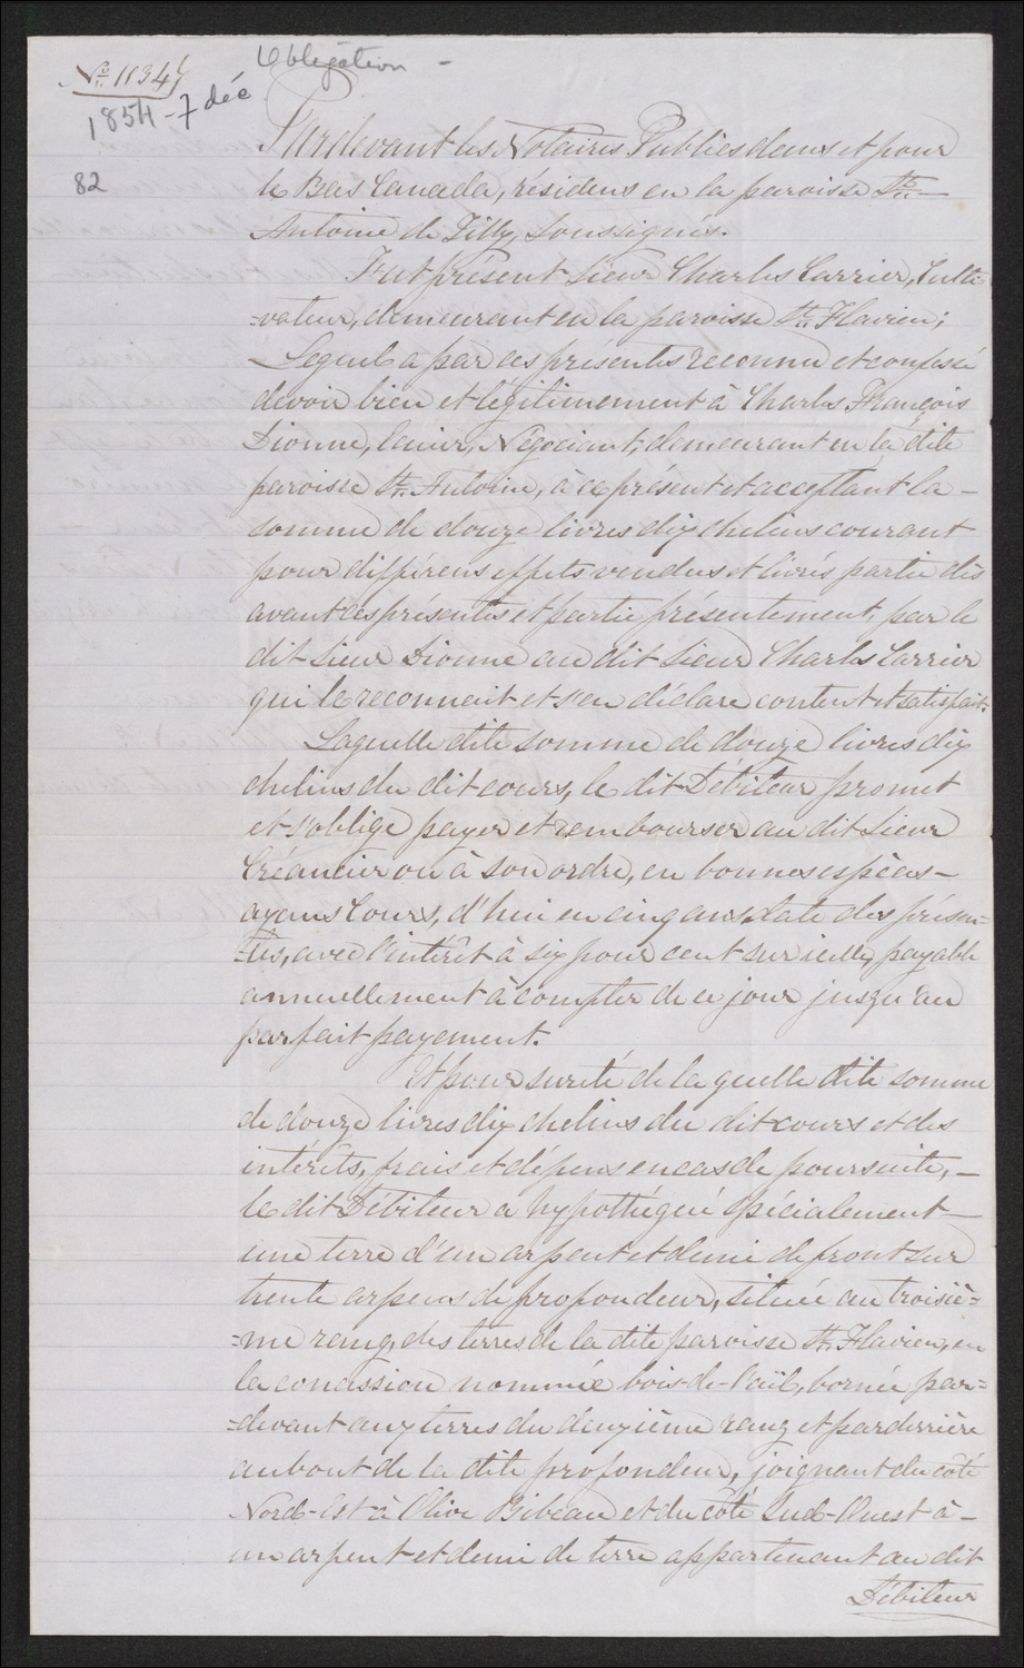 Obligation -
No. 11347
1854 - 7 déc
82
Pardevant les Notaires Publics dans et pour
le Bas Canada, résidens en la paroisse St.
Antoine de Tilly, Soussignés.
Fut présent Sieur Charles Carrier, Culti-
=vateur, demeurant en la paroisse St. Flavien;
Lequel a par ces présentes reconnu et confessé
devoir bien et légitimement à Charles François
Dionne, Ecuier, Négociant, demeurant en la dite
paroisse St. Antoine, à ce présent et acceptant la -
somme de douze livres dix chelins courant
pour différens effets vendus et livrés partie dès
avant ces présentes et partie présentement, par le
dit Sieur Dionne au dit Sieur Charles Carrier
qui le reconnait et s'en déclare content et satisfait.
Laquelle dite somme de douze livres dix
chelins du dit cours, le dit Débiteur promet
et s'oblige payer et rembourser au dit Sieur
Créancier ou à son ordre, en bonnes espèces -
ayans Cours, d'hui en cinq ans, date des présen=
=tes, avec l'intérêt à six pour cent sur icelle, payable
annuellement à compter de ce jour jusqu'au
parfait payement.
Et pour sureté de laquelle dite somme
de douze livres dix chelins du dit cours et des
intérêts, frais et dépens en cas de poursuite, -
le dit Débiteur a hypothéqué spécialement -
une terre d'un arpent et demi de front sur
trente arpens de profondeur, située au troisiè=
=me rang des terres de la dite paroisse St. Flavien, en
la concession nommée bois-de-l'ail, bornée par=
=devant aux terres du deuxième rang et parderrière
au bout de la dite profondeur, joignant du côté
Nord-Est à Olive Bibeau et du côté Sud-Ouest à -
un arpent et demi de terre appartenant au dit
Débiteur